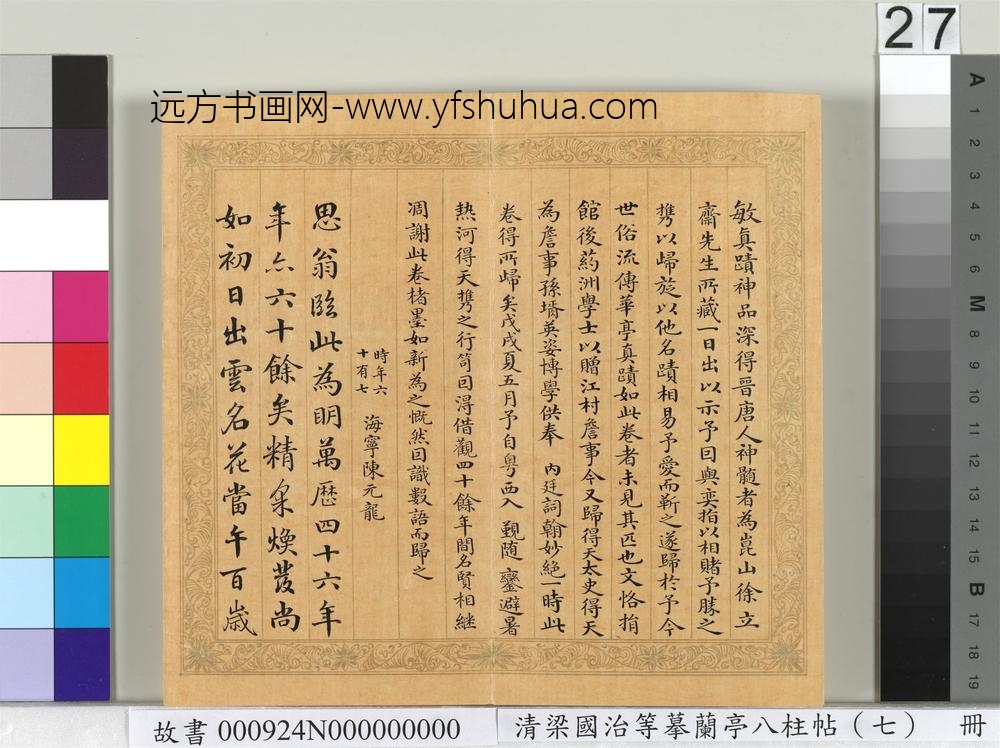 远方书画网-www.yfshuhua.com
27
敏真蹟神品深得晉唐人神髓者為崑山徐立
齋先生所藏一日出以示予曰與奕指以相賭予勝之
攜以歸旋以他名蹟相易予愛而靳之遂歸於予今
世俗流傳華亭真蹟如此卷者未見其匹也文恪捐
館後葯洲學士以贈江村詹事今又歸得天太史得天
為詹事孫壻英姿博學供奉 內廷詞翰妙絕一時此
卷得所歸矣戊戌夏五月予自粵西入 覲随 鑾避暑
熱河得天攜之行笥因得借觀四十餘年間名賢相継
凋謝此卷楮墨如新為之慨然因識數語而歸之
時年六
十有七
海寧陳元龍
思翁臨此為明萬歷四十六年
年六六十餘矣精采煥發尚
如初日出雲名花當午百歲
A
1
2
3
4
5
6
M
8
9
10
11
12
13
14
15
B
17
18
19
故書 000924N000000000
清梁國治等摹蘭亭八柱帖（七） 冊